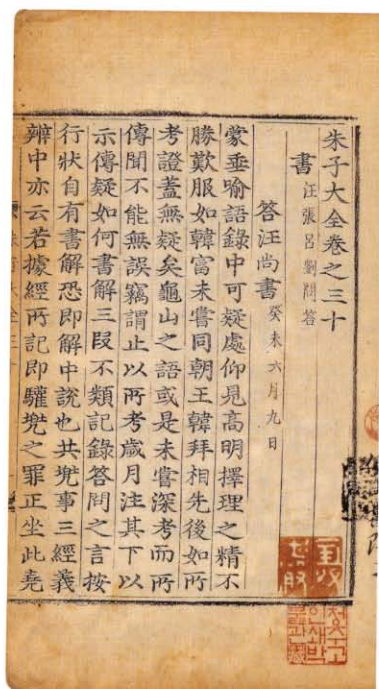 朱子大全卷之三十
書汪張呂劉問答
答汪尚書癸未六月九日
蒙垂喻語錄中可疑處仰見高明擇理之精不
勝歎服如韓富未嘗同朝王韓拜相先後如所
考證蓋無疑矣龜山之語或是未嘗深考而所
傳聞不能無誤竊謂止以所考歲月注其下以
示傳疑如何書解三段不類記錄答問之言按
行狀自有書解恐即解中說也共兠事三經義
辨中亦云若據經所記即驩兠之罪正坐此堯